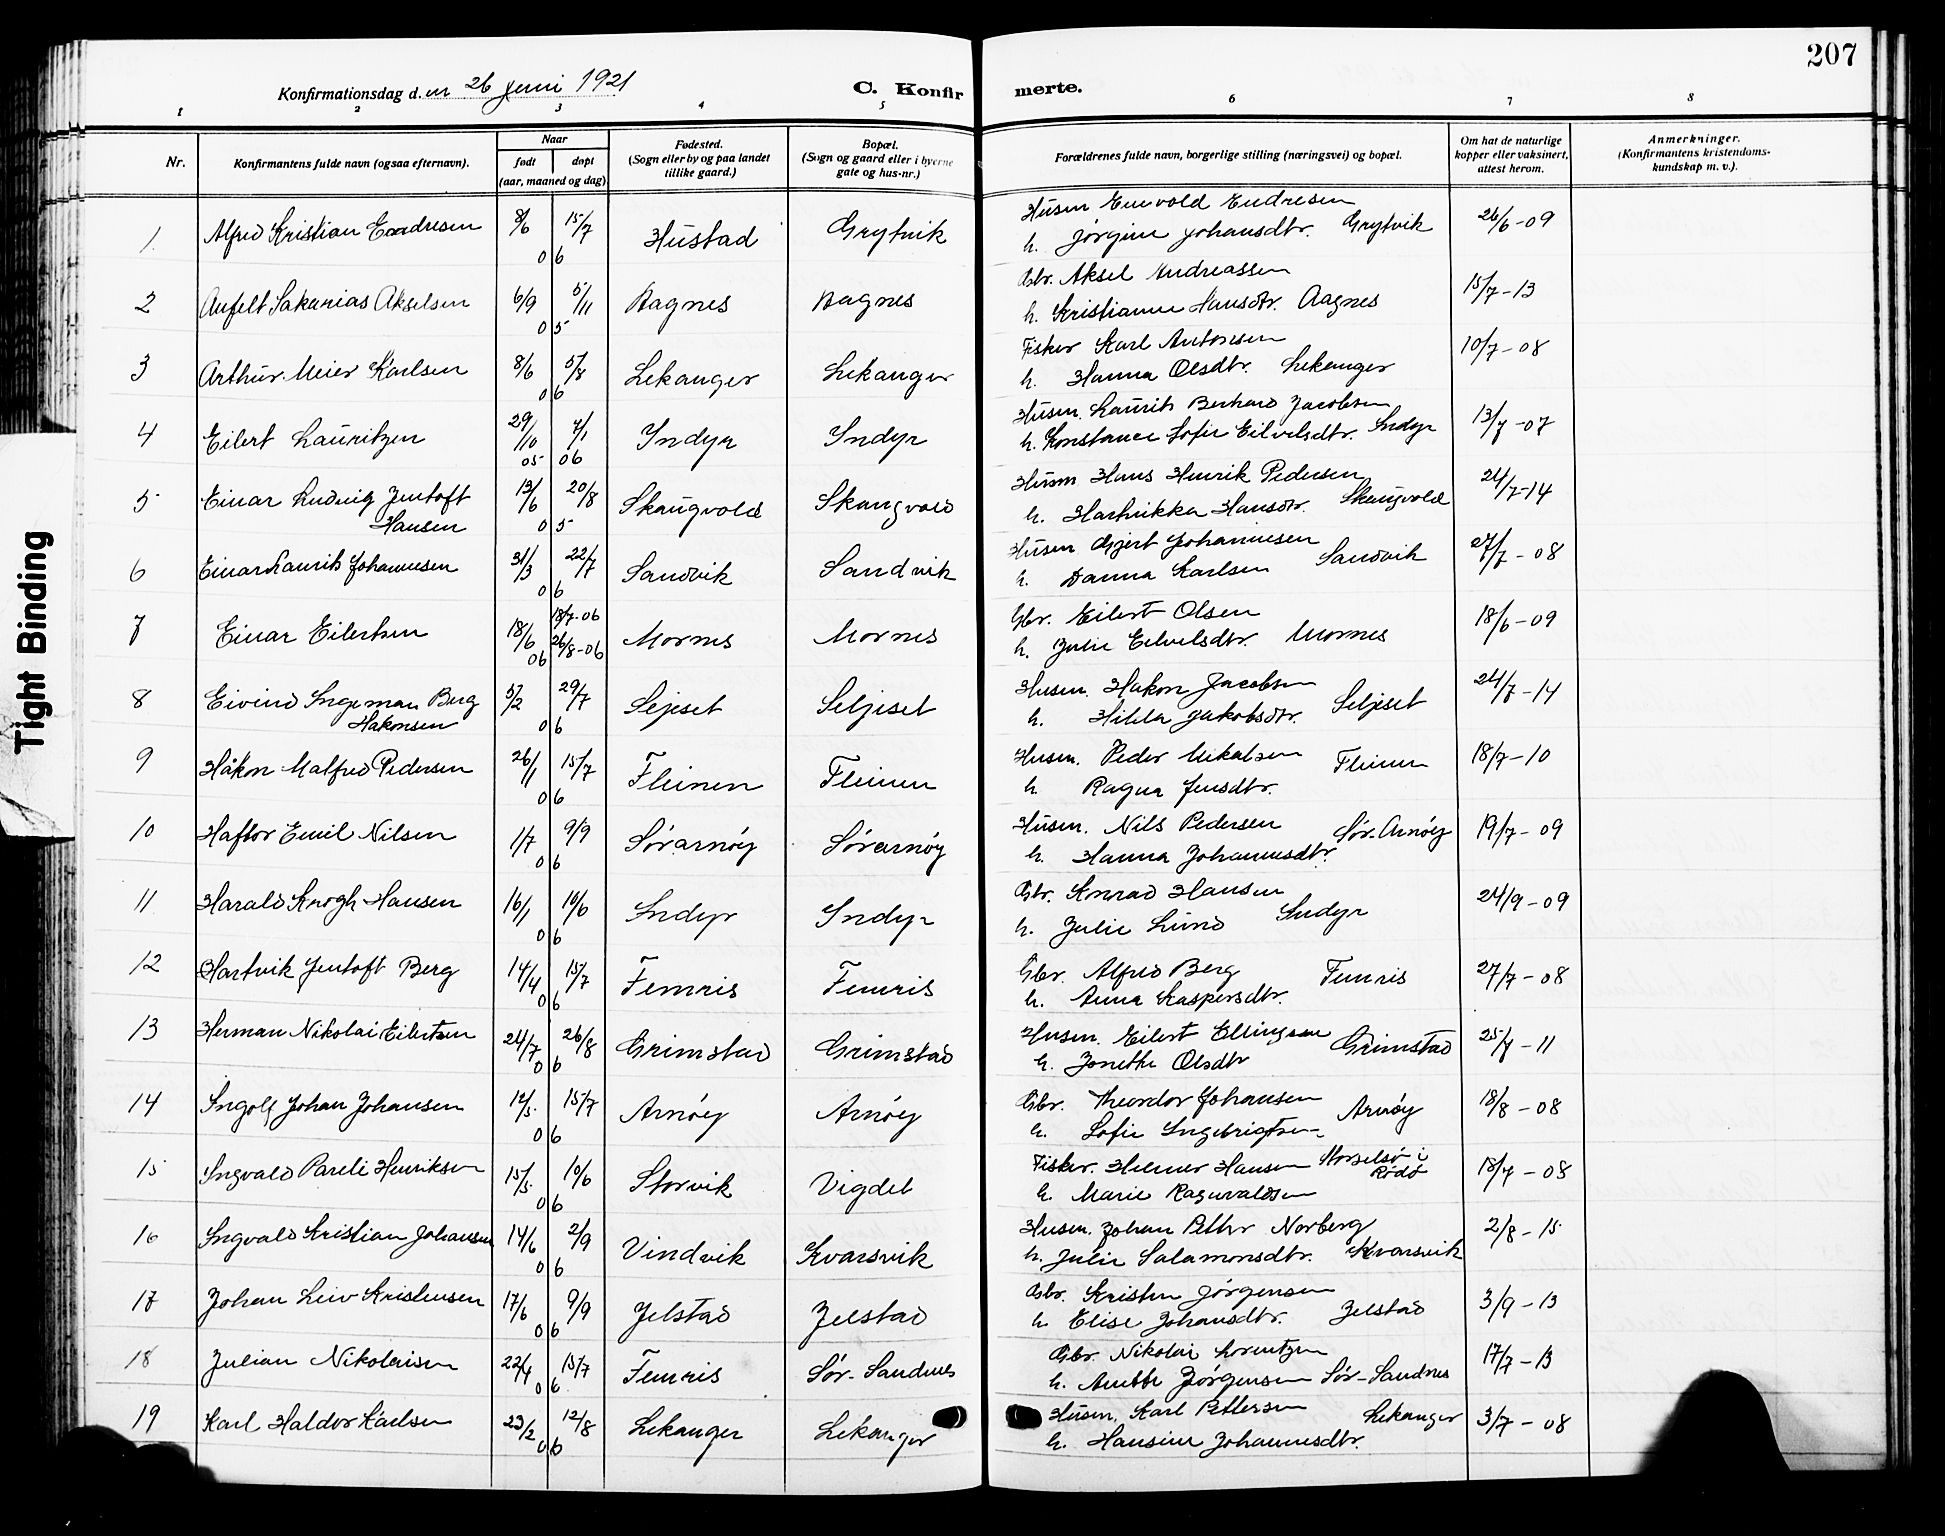 207
Konfirmationsdag d. en 26 juni 1921
C. Konfirmerte.
1 2 3 4 5 6 7 8
Nr.
Konfirmantens fulde navn (ogsaa efternavn).
Naar
født døpt
(aar, maaned og dag)
Fødested.
(Sogn eller by og paa landet
tillike gaard.)
Bopæl.
(Sogn og gaard eller i byerne
gate og hus-nr.)
Forældrenes fulde navn, borgerlige stilling (næringsvei) og bopæl.
Om hat de naturlige
kopper eller vaksinert,
attest herom.
Anmerkninger.
(Konfirmantens kristendoms-
kundskap m. v.).
1 Alfred Kristian Endresen 8/6 15/7 06 Hustad Grytvik Husm Enevold Endresen 26/6-09
h. Jørgine Johansdtr. Grytvik
2 Anfelt Sakarias Akselsen 6/9 5/11 05 Aagnes Aagnes Gbr. Aksel Andreassen 15/7-13
h. Kristianne Hansdtr. Aagnes
3 Arthur Meier Karlsen 8/6 5/8 06 Lekanger Lekanger Fisker Karl Antonsen 10/7-08
h. Hanna Olsdtr. Lekanger
4 Eilert Lauritzen 29/10 05 7/1 06 Indyr Indyr Husm. Laurits Berhard Jacobsen 13/7-07
h. Konstance Sofie Eilertsdtr. Indyr
5 Einar Ludvig Jentoft 13/6 20/8 05 Skaugvold Skaugvold Husm Hans Henrik Pedersen 24/7-14
Hansen h. Hartvikka Hansdtr. Skaugvold
6 Einar Laurits Johannesen 31/3 22/7 06 Sandvik Sandvik Husm Gjert Johannesen Sandvik 27/7-08
h. Danna Karlsen
7 Einar Eilertsen 18/6 06 18/7-06 26/8-06 Mornes Mornes Gbr. Eilert Olsen 18/6-09
h. Julie Eilertsdtr. Mornes
8 Eivind Ingeman Berg 5/2 29/7 06 Sejeset Seljeset Husm. Hakon Jacobsen Seljeset 24/7-14
Hakonsen h. Hilda Jakobsdtr.
9 Håkon Malfred Pedersen 26/1 15/7 06 Fleinen Fleinen Husm. Peder Mikalsen Fleinen 18/7-10
h Ragna Jensdtr.
10 Haftor Emil Nilsen 1/7 9/9 06 Sørarnøy Sørarnøy Husm. Nils Pedersen Sør-Arnøy 19/7-09
h. Hanna Johannesdtr.
11 Harald Krogh Hansen 16/1 10/6 06 Indyr Indyr Gbr. Konrad Hansen 24/9-09
h. Julie Lund Indyr
12 Hartvik Jentoft Berg 14/4 15/7 06 Femris Femris Gbr. Alfred Berg Femris 27/7-08
h. Anna Kaspersdtr.
13 Herman Nikolai Eilertsen 24/7 26/8 06 Grimstad Grimstad Husm. Eilert Ellingsen Grimstad 25/7-11
h. Jonette Olsdtr
14 Ingolf Johan Johansen 12/5 15/7 06 Arnøy Arnøy Gbr. Theordor Johansen Arnøy 18/8-08
h. Sofie Ingebrigtsen
15 Ingvald Pareli Henriksen 15/5 10/6 06 Storvik Vigdel Fisker. Helmer Hansen Storselsø i Rødø 18/7-08
h. Marie Ragnvaldsen
16 Ingvald Kristian Johansen 14/6 2/9 06 Vindvik Kvarsvik Husm. Johan Petter Norberg 2/8-15
h. Julie Salamonsdtr. Kvarsvik
17 Johan Leiv Kristensen 17/6 9/9 06 Jelstad Jelstad Gbr. Kristen Jørgensen 3/9-13
h Elise Johansdtr. Jelstad
18 Julian Nikolaisen 22/4 15/7 06 Femris Sør-Sandnes Gbr. Nikolai Lorentzen 17/7-13
h. Anette Jørgensen Sør-Sandnes
19 Karl Haldor Karlsen 23/2 12/8 06 Lekanger Lekanger Husm. Karl Pettersen Lekanger 3/7-08
h. Hansine Johannesdtr.
Tight Binding